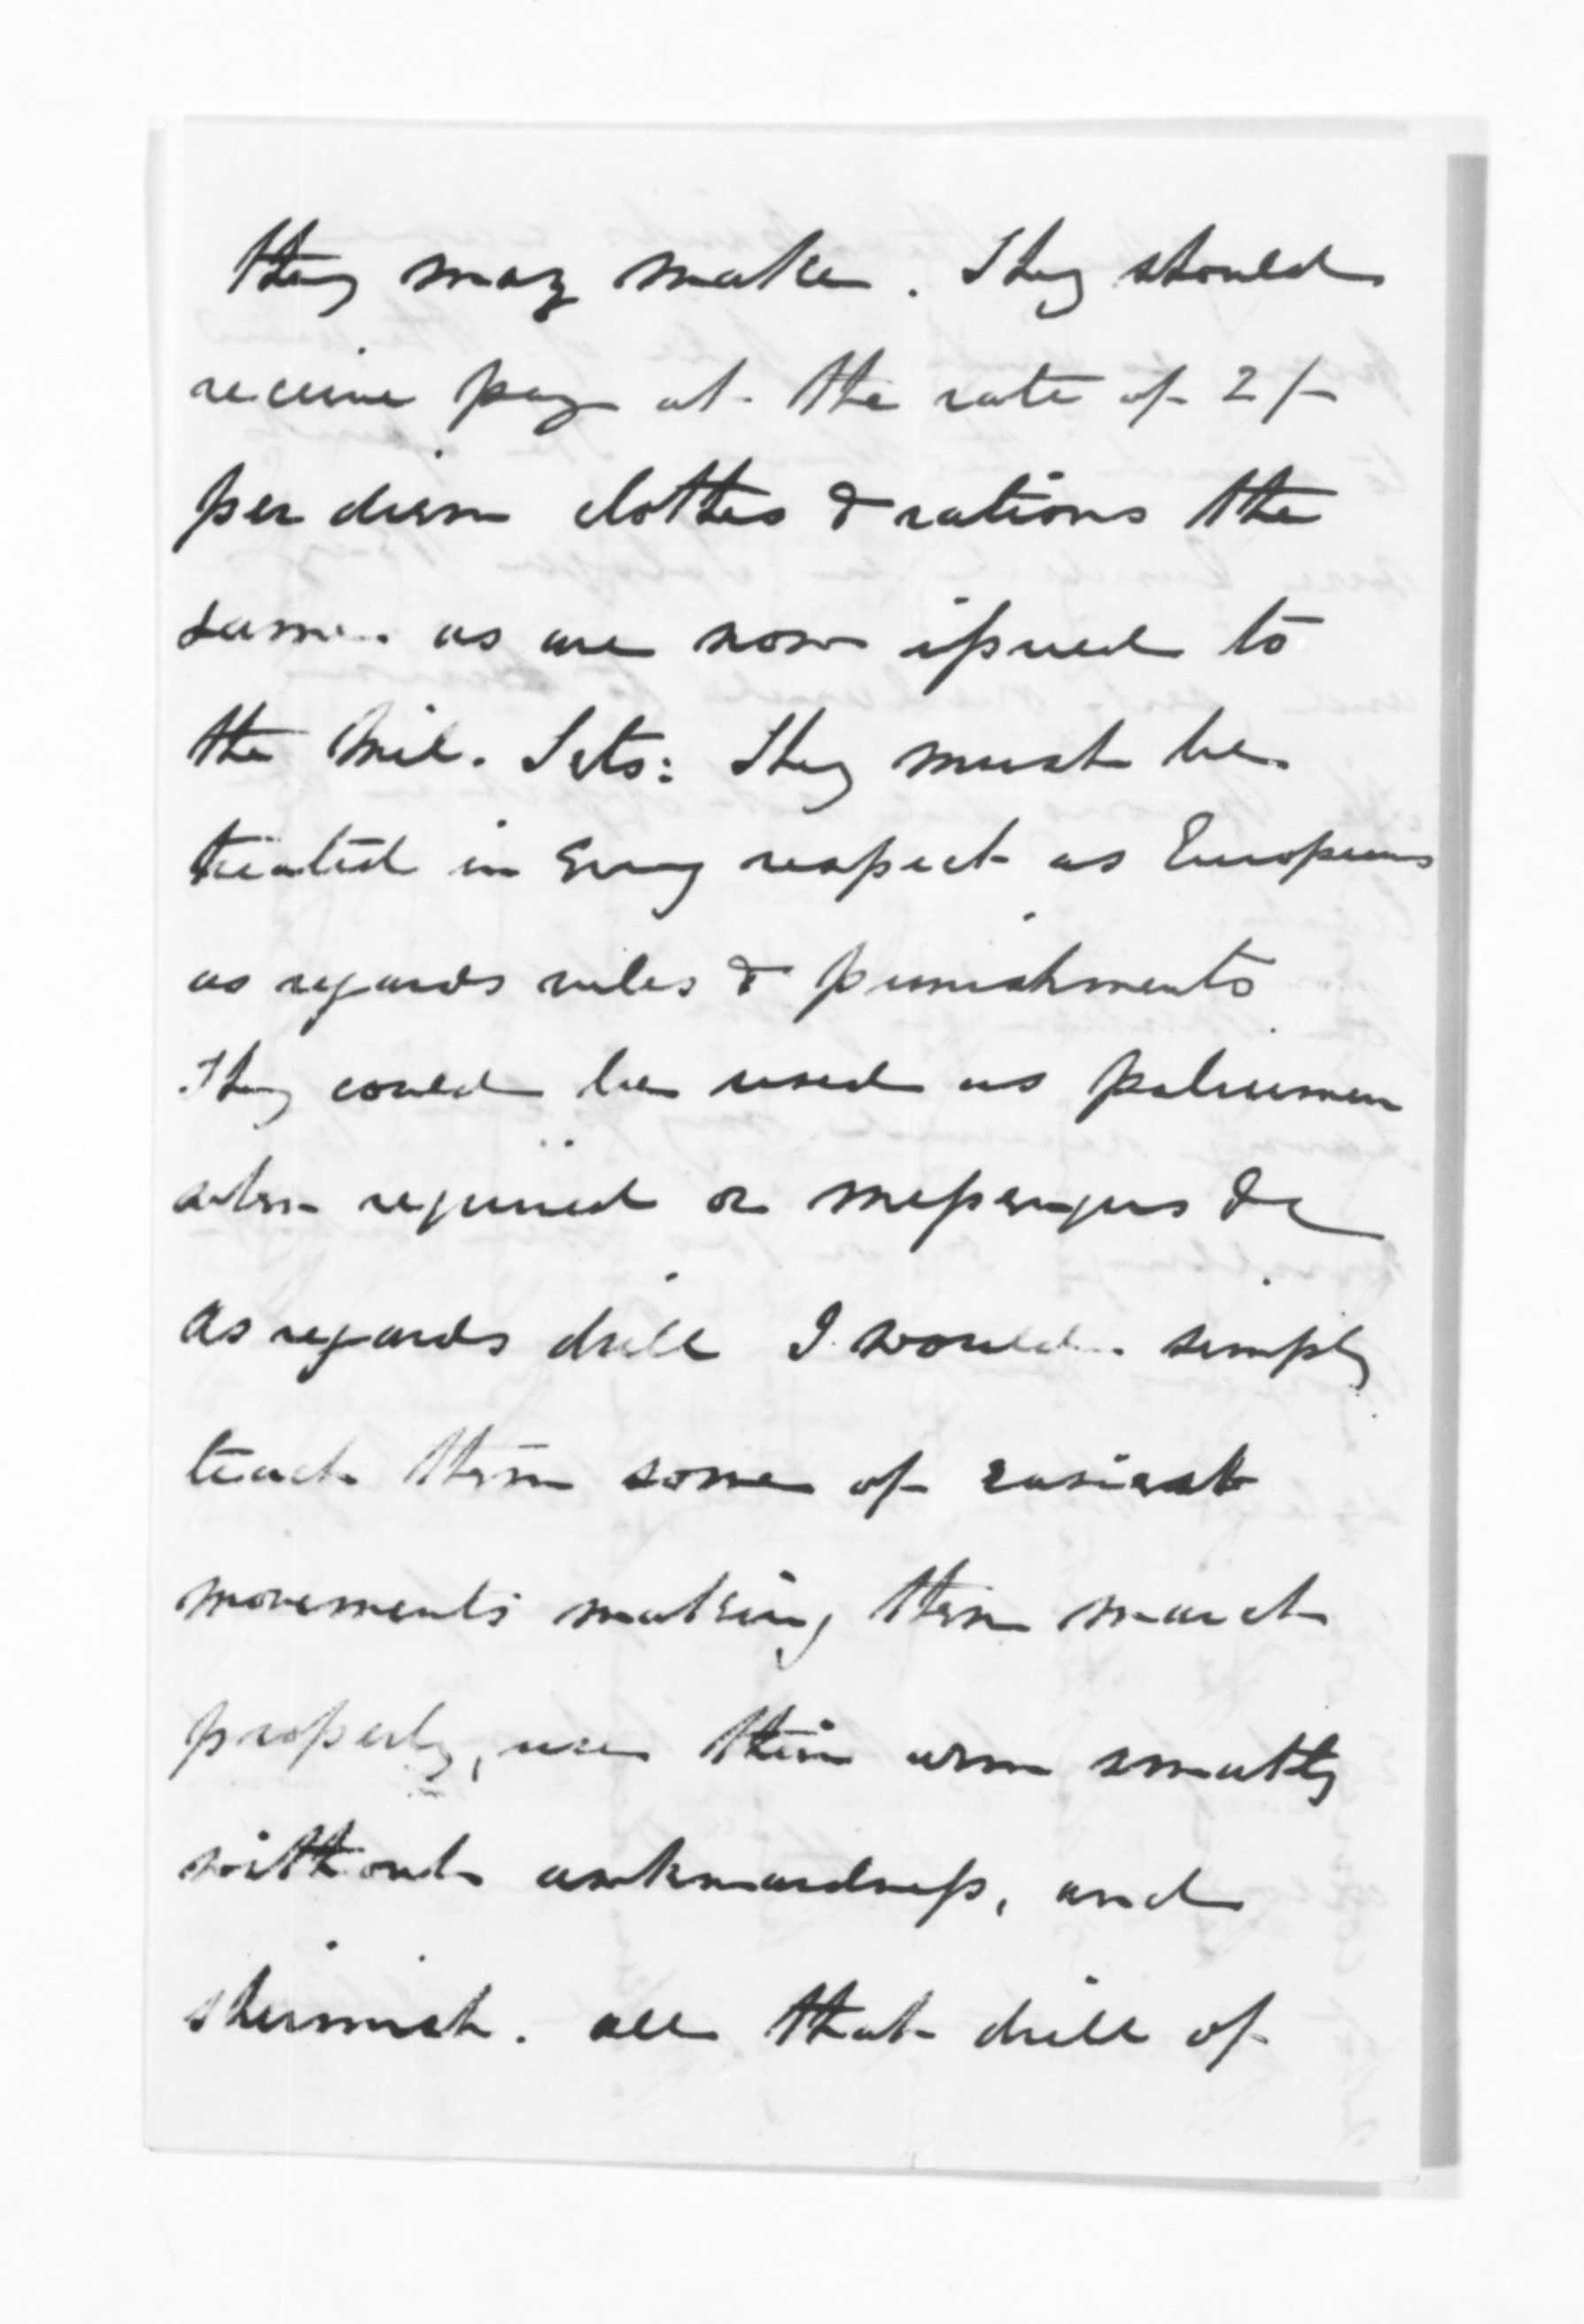 they may make. They should
receive pay at the rate of 2/-
per diem clothes & rations the
same as are now issued to
the Mil. Sets: They must be
treated in every respect as Europeans
as regards rules & punishments
They could be used as policemen
when required or messengers &c
As regards drill I would simply
teach them some of easiest
movements making them march
properly, use their arm smartly
without awkwardness, and
skirmish. all that drill of